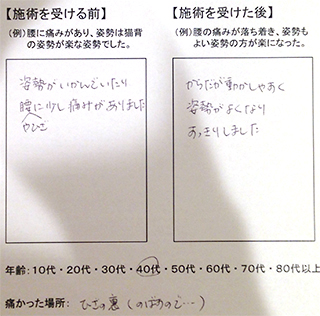 【施術を受ける前】
(例)腰に痛みがあり、姿勢は猫背
の姿勢が楽な姿勢でした。
姿勢がいがんでいたり
腰に少し痛みがありました
やひざ
【施術を受けた後】
(例)腰の痛みが落ち着き、姿勢も
よい姿勢の方が楽になった。
からだが動かしやすく
姿勢がよくなり
すっきりしました
年齢:10代・20代・30代・40代・50代・60代・70代・80代以上
痛かった場所: ひざの裏